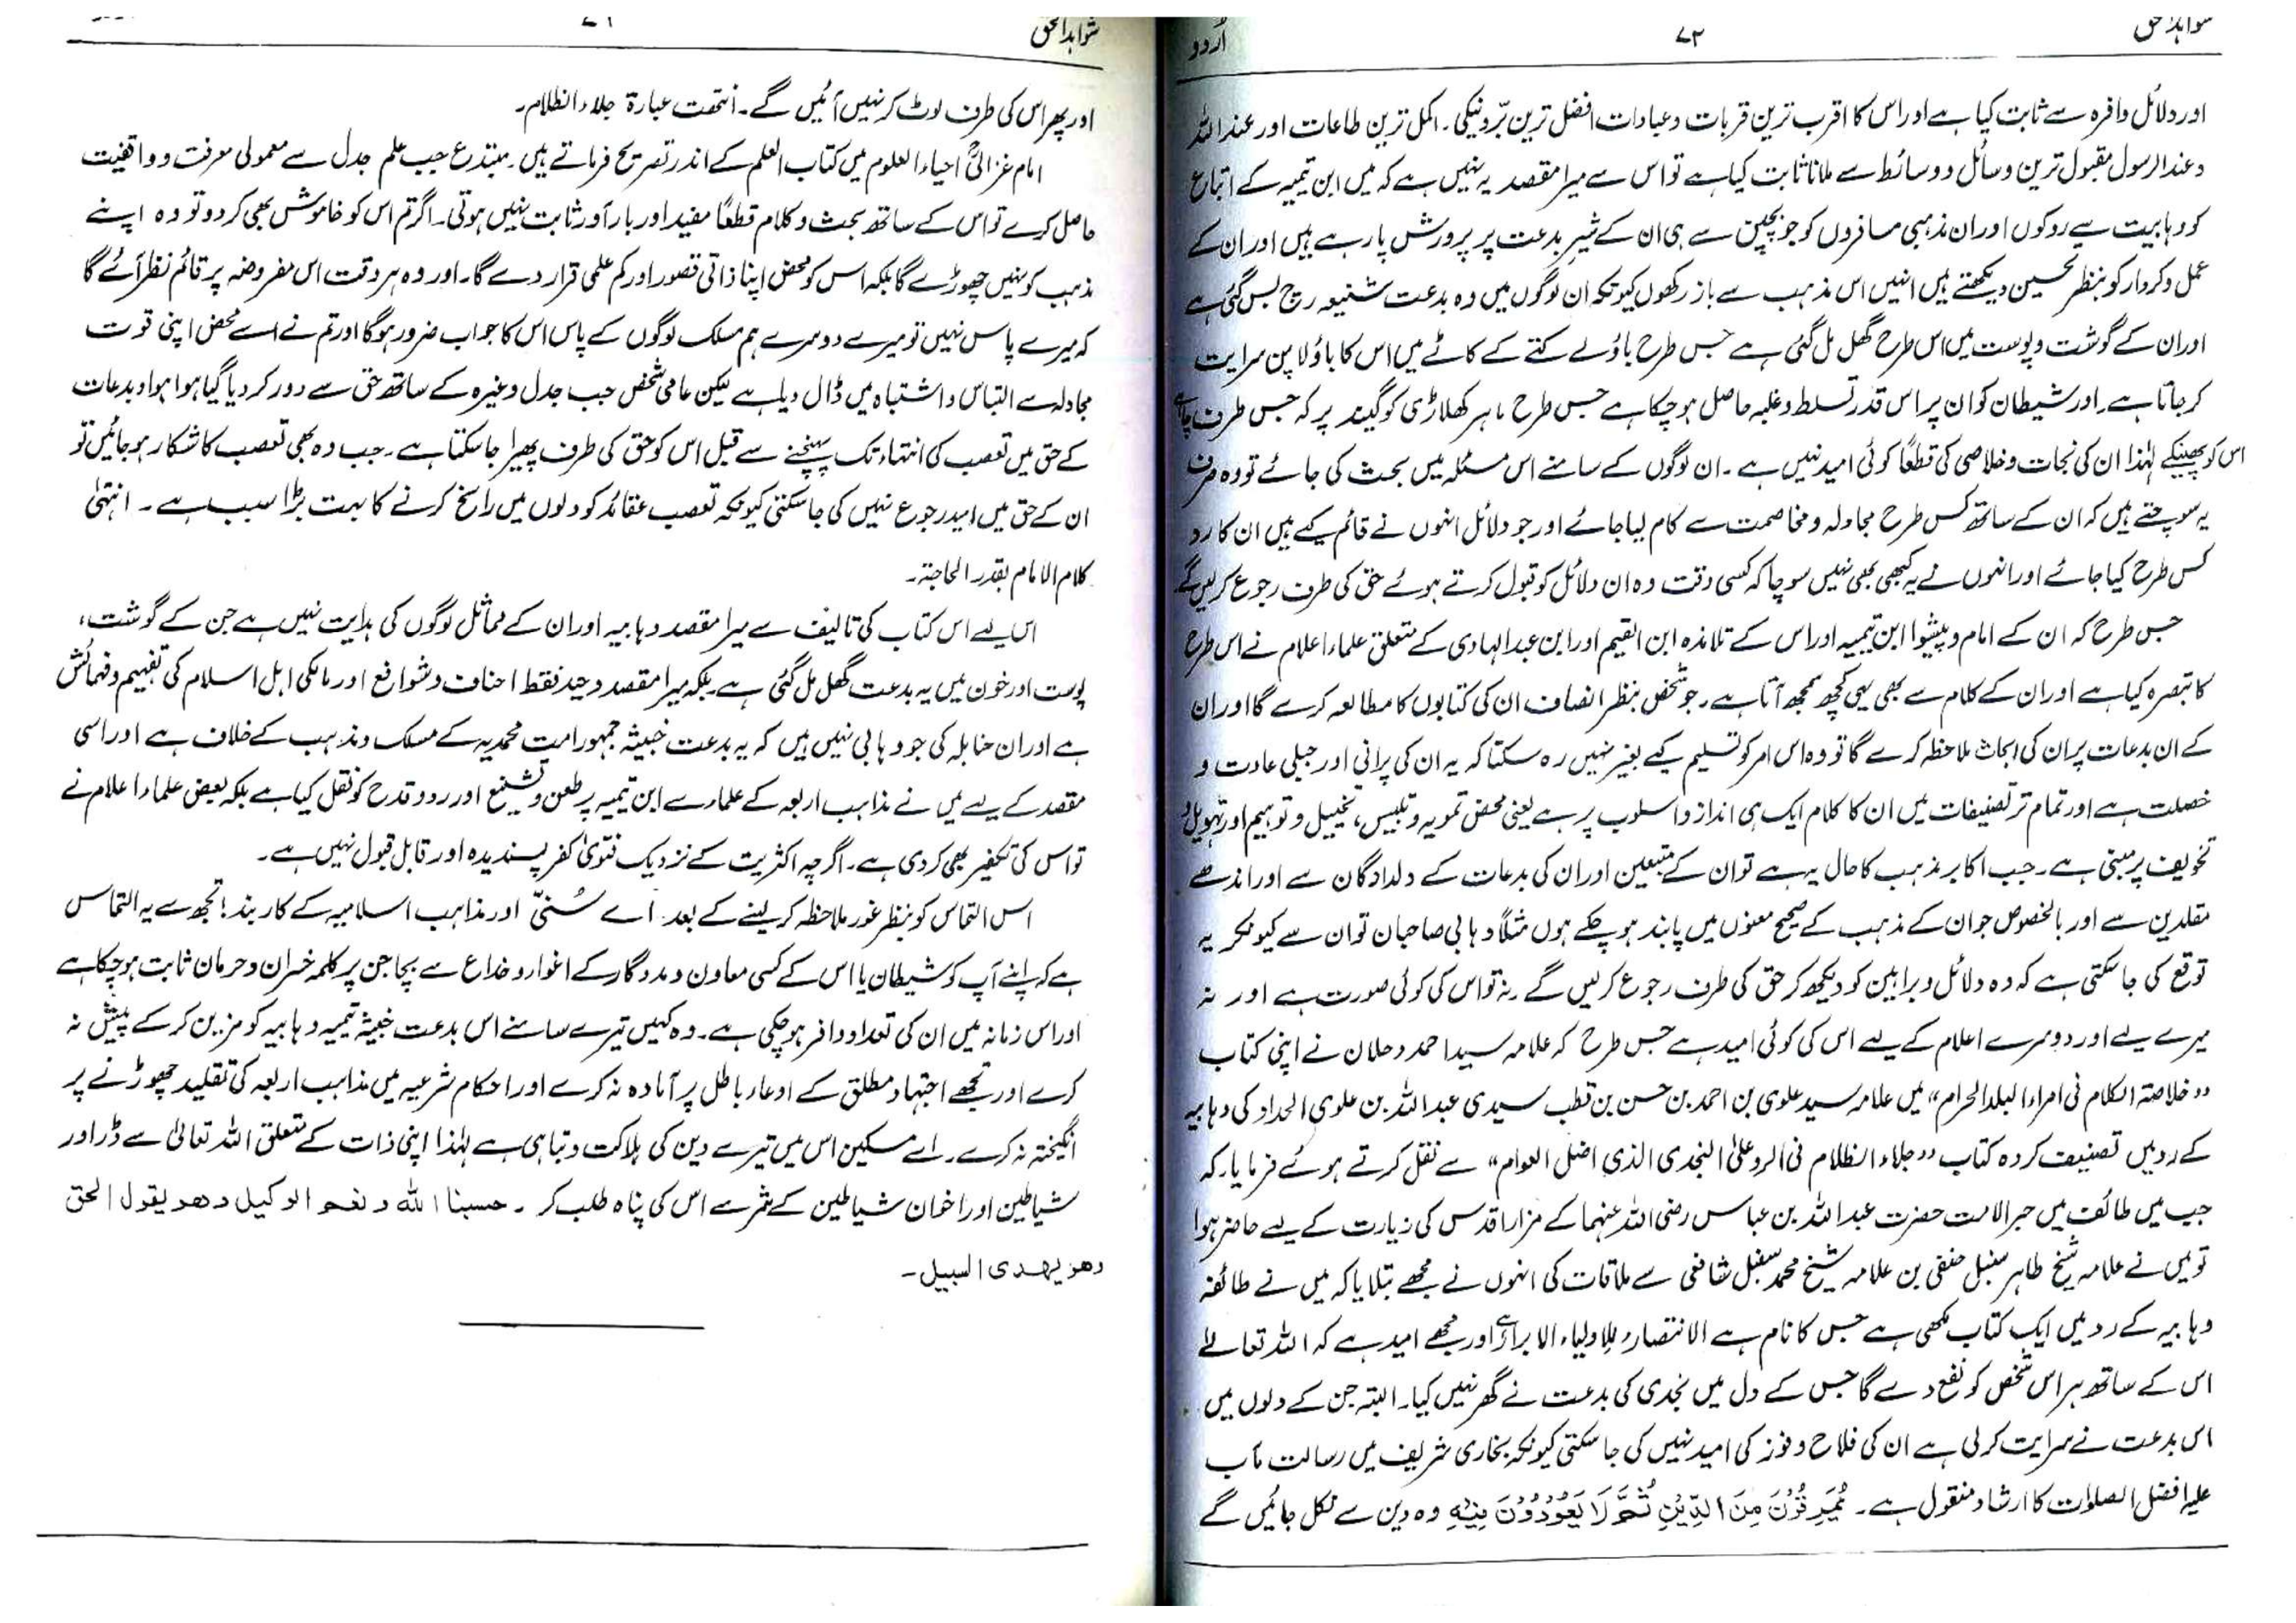 شواہد الحق ۷۲ اُردو
اور دلائل وافرہ سے ثابت کیا ہے اور اس کا اقرب ترین قربات و عبادات افضل ترین بّر ونیکی۔ اکمل ترین طاعات اور عند اللہ
وعند الرسول مقبول ترین وسائل و وسائط سے ملانا ثابت کیا ہے تو اس سے میرا مقصد یہ نہیں ہے کہ میں ابن تیمیہ کے اتباع
کو وہابیت سے روکوں اور ان مذہبی مسافروں کو جو بچپن سے ہی ان کے شیر بدعت پر پرورش پا رہے ہیں اور ان کے
عمل و کردار کو بنظر تحسین دیکھتے ہیں انہیں اس مذہب سے باز رکھوں کیونکہ ان لوگوں میں وہ بدعت شنیعہ رچ بس گئی ہے
اور ان کے گوشت و پوست میں اس طرح گھل مل گئی ہے جس طرح باؤلے کتے کے کاٹے میں اس کا باؤلا پن سرایت
کر جاتا ہے۔ اور شیطان کو ان پر اس قدر تسلط و غلبہ حاصل ہو چکا ہے جس طرح ماہر کھلاڑی کو گیند پر کہ جس طرف چاہے
اس کو پھینکے لہٰذا ان کی نجات و خلاصی کی قطعاً کوئی امید نہیں ہے۔ ان لوگوں کے سامنے اس مسئلہ میں بحث کی جائے تو وہ صرف
یہ سوچتے ہیں کہ ان کے ساتھ کس طرح مجادلہ و مخاصمت سے کام لیا جائے اور جو دلائل انہوں نے قائم کیے ہیں ان کا رد
کس طرح کیا جائے اور انہوں نے یہ کبھی بھی نہیں سوچا کہ کسی وقت وہ ان دلائل کو قبول کرتے ہوئے حق کی طرف رجوع کریں گے
جس طرح کہ ان کے امام و پیشوا ابن تیمیہ اور اس کے تلامذہ ابن القیم اور ابن عبد الہادی کے متعلق علماء اعلام نے اس طرح
کا تبصرہ کیا ہے اور ان کے کلام سے بھی یہی کچھ سمجھ آتا ہے۔ جو شخص بنظر انصاف ان کی کتابوں کا مطالعہ کرے گا اور ان
کے ان بدعات پر ان کی ابحاث ملاحظہ کرے گا تو وہ اس امر کو تسلیم کیے بغیر نہیں رہ سکتا کہ یہ ان کی پرانی اور جبلی عادت و
خصلت ہے اور تمام تر تصنیفات میں ان کا کلام ایک ہی انداز و اسلوب پر ہے یعنی محض تمویہ و تلبیس، تخییل و توہیم اور تہویل و
تخویف پر مبنی ہے۔ جب اکابر مذہب کا حال یہ ہے تو ان کے متبعین اور ان کی بدعات کے دلدادگان سے اور اندھے
مقلدین سے اور بالخصوص جو ان کے مذہب کے صحیح معنوں میں پابند ہو چکے ہوں مثلاً وہابی صاحبان تو ان سے کیونکر یہ
توقع کی جا سکتی ہے کہ وہ دلائل و براہین کو دیکھ کر حق کی طرف رجوع کریں گے۔ نہ تو اس کی کوئی صورت ہے اور نہ
میرے لیے اور دوسرے اعلام کے لیے اس کی کوئی امید ہے جس طرح کہ علامہ سید احمد دحلان نے اپنی کتاب
”خلاصۃ الکلام فی امراء البلد الحرام“ میں علامہ سید علوی بن احمد بن حسن بن قطب سیدی عبد اللہ بن علوی الحداد کی وہابیہ
کے رد میں تصنیف کردہ کتاب ”جلاء الظلام فی الرد علی النجدی الذی اضل العوام“ سے نقل کرتے ہوئے فرمایا۔ کہ
جب میں طائف میں حبر الامت حضرت عبد اللہ بن عباس رضی اللہ عنہما کے مزار اقدس کی زیارت کے لیے حاضر ہوا
تو میں نے علامہ شیخ طاہر سنبل حنفی بن علامہ شیخ محمد سنبل شافعی سے ملاقات کی انہوں نے مجھے بتلایا کہ میں نے طائفہ
وہابیہ کے رد میں ایک کتاب لکھی ہے جس کا نام ہے الانتصار للاولیاء الابرار اور مجھے امید ہے کہ اللہ تعالےٰ
اس کے ساتھ ہر اس شخص کو نفع دے گا جس کے دل میں نجدی کی بدعت نے گھر نہیں کیا۔ البتہ جن کے دلوں میں
اس بدعت نے سرایت کر لی ہے ان کی فلاح و فوز کی امید نہیں کی جا سکتی کیونکہ بخاری شریف میں رسالت مآب
علیہ افضل الصلوات کا ارشاد منقول ہے۔ يَمْرُقُوْنَ مِنَ الدِّيْنِ ثُمَّ لَا يَعُوْدُوْنَ فِيْهِ وہ دین سے نکل جائیں گے
شواہد الحق
اور پھر اس کی طرف لوٹ کر نہیں آئیں گے۔ انتھت عبارۃ جلاء الظلام۔
امام غزالیؒ احیاء العلوم میں کتاب العلم کے اندر تصریح فرماتے ہیں۔ مبتدع جب علم جدل سے معمولی معرفت و واقفیت
حاصل کرے تو اس کے ساتھ بحث و کلام قطعًا مفید اور بار آور ثابت نہیں ہوتی۔ اگر تم اس کو خاموش بھی کر دو تو وہ اپنے
مذہب کو نہیں چھوڑے گا بلکہ اس کو محض اپنا ذاتی قصور اور کم علمی قرار دے گا۔ اور وہ ہر وقت اس مفروضہ پر قائم نظر آئے گا
کہ میرے پاس نہیں تو میرے دوسرے ہم مسلک لوگوں کے پاس اس کا جواب ضرور ہوگا اور تم نے اسے محض اپنی قوت
مجادلہ سے التباس و اشتباہ میں ڈال دیا ہے لیکن عامی شخص جب جدل وغیرہ کے ساتھ حق سے دور کر دیا گیا ہو اہواء و بدعات
کے حق میں تعصب کی انتہاء تک پہنچنے سے قبل اس کو حق کی طرف پھیرا جا سکتا ہے۔ جب وہ بھی تعصب کا شکار ہو جائیں تو
ان کے حق میں امید رجوع نہیں کی جا سکتی کیونکہ تعصب عقائد کو دلوں میں راسخ کرنے کا بہت بڑا سبب ہے۔ انتہیٰ
کلام الامام بقدر الحاجۃ۔
اس لیے اس کتاب کی تالیف سے میرا مقصد وہابیہ اور ان کے مماثل لوگوں کی ہدایت نہیں ہے جن کے گوشت،
پوست اور خون میں یہ بدعت گھل مل گئی ہے بلکہ میرا مقصد وحید فقط احناف و شوافع اور مالکی اہل اسلام کی تفہیم و فہمائش
ہے اور ان حنابلہ کی جو وہابی نہیں ہیں کہ یہ بدعت خبیثہ جمہور امت محمدیہ کے مسلک و مذہب کے خلاف ہے اور اسی
مقصد کے لیے میں نے مذاہب اربعہ کے علماء سے ابن تیمیہ پر طعن و تشنیع اور رد و قدح کو نقل کیا ہے بلکہ بعض علماء اعلام نے
تو اس کی تکفیر بھی کر دی ہے۔ اگرچہ اکثریت کے نزدیک فتویٰ کفر پسندیدہ اور قابل قبول نہیں ہے۔
اس التماس کو بنظر غور ملاحظہ کر لینے کے بعد اے سُنّی اور مذاہب اسلامیہ کے کاربند! تجھ سے یہ التماس
ہے کہ اپنے آپ کو شیطان یا اس کے کسی معاون و مددگار کے اغوار و خداع سے بچا جن پر کلمہ خسران و حرمان ثابت ہو چکا ہے
اور اس زمانہ میں ان کی تعداد وافر ہو چکی ہے۔ وہ کہیں تیرے سامنے اس بدعت خبیثہ تیمیہ وہابیہ کو مزین کر کے پیش نہ
کرے اور تجھے اجتہاد مطلق کے ادعاء باطل پر آمادہ نہ کرے اور احکام شرعیہ میں مذاہب اربعہ کی تقلید چھوڑنے پر
انگیختہ نہ کرے۔ اے مسکین اس میں تیرے دین کی ہلاکت و تباہی ہے لہٰذا اپنی ذات کے متعلق اللہ تعالیٰ سے ڈر اور
شیاطین اور اخوان شیاطین کے شر سے اس کی پناہ طلب کر۔ حسبنا اللہ و نعم الوکیل وھو یقول الحق
وھو یھدی السبیل۔